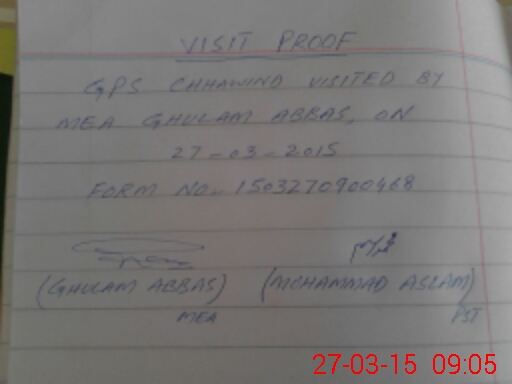 VISIT PROOF
GPS CHHAWIND VISITED BY
MEA GHULAM ABBAS, ON
27-03-2015
FORM NO. 1503270900468
(GHULAM ABBAS) (MUHAMMAD ASLAM)
MEA PST
27-03-15 09:05